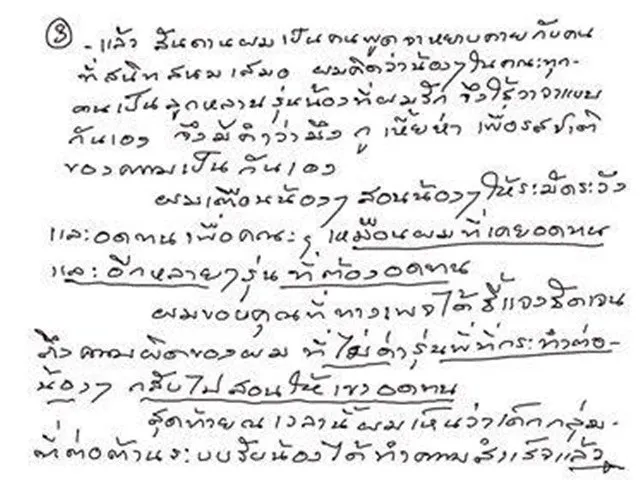 ③ - แล้ว สันดานผมเป็นคนพูดจาหยาบคายกับคน
ที่สนิทสนมเสมอ ผมคิดว่าน้องๆในคณะทุก-
คนเป็นลูกหลานรุ่นน้องที่ผมรัก จึงใช้วาจาแบบ
กันเอง จึงมีคำว่ามึง กู เหี้ยห่า เพื่อรสชาติ
ของความเป็นกันเอง
ผมเตือนน้องๆ สอนน้องๆ ให้ระมัดระวัง
และอดทนเพื่อคณะๆ เหมือนผมที่เคยอดทน
และอีกหลายๆรุ่น ที่ต้องอดทน
ผมขอบคุณที่ทางเพจได้ชี้แจงชัดเจน
ถึงความผิดของผม ที่ไม่ด่ารุ่นพี่ที่กระทำต่อ-
น้องๆ กลับไปสอนให้เขาอดทน
สุดท้ายณเวลานี้ผมเห็นว่าเด็กกลุ่ม-
ที่ต่อต้านระบบรับน้องได้ทำความสำเร็จแล้ว